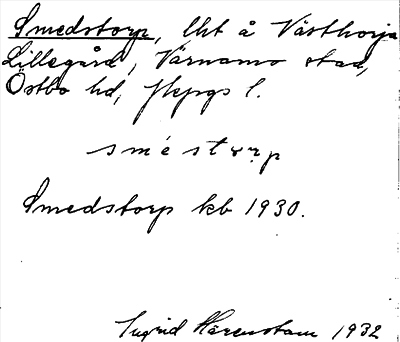 Smedstorp, lht å Västhorja
Lillegård, Värnamo stad,
Östbo hd, Jkpgs l.
smést ɤrp
Smedstorp kb 1930.
Ingrid Härenstam 1932